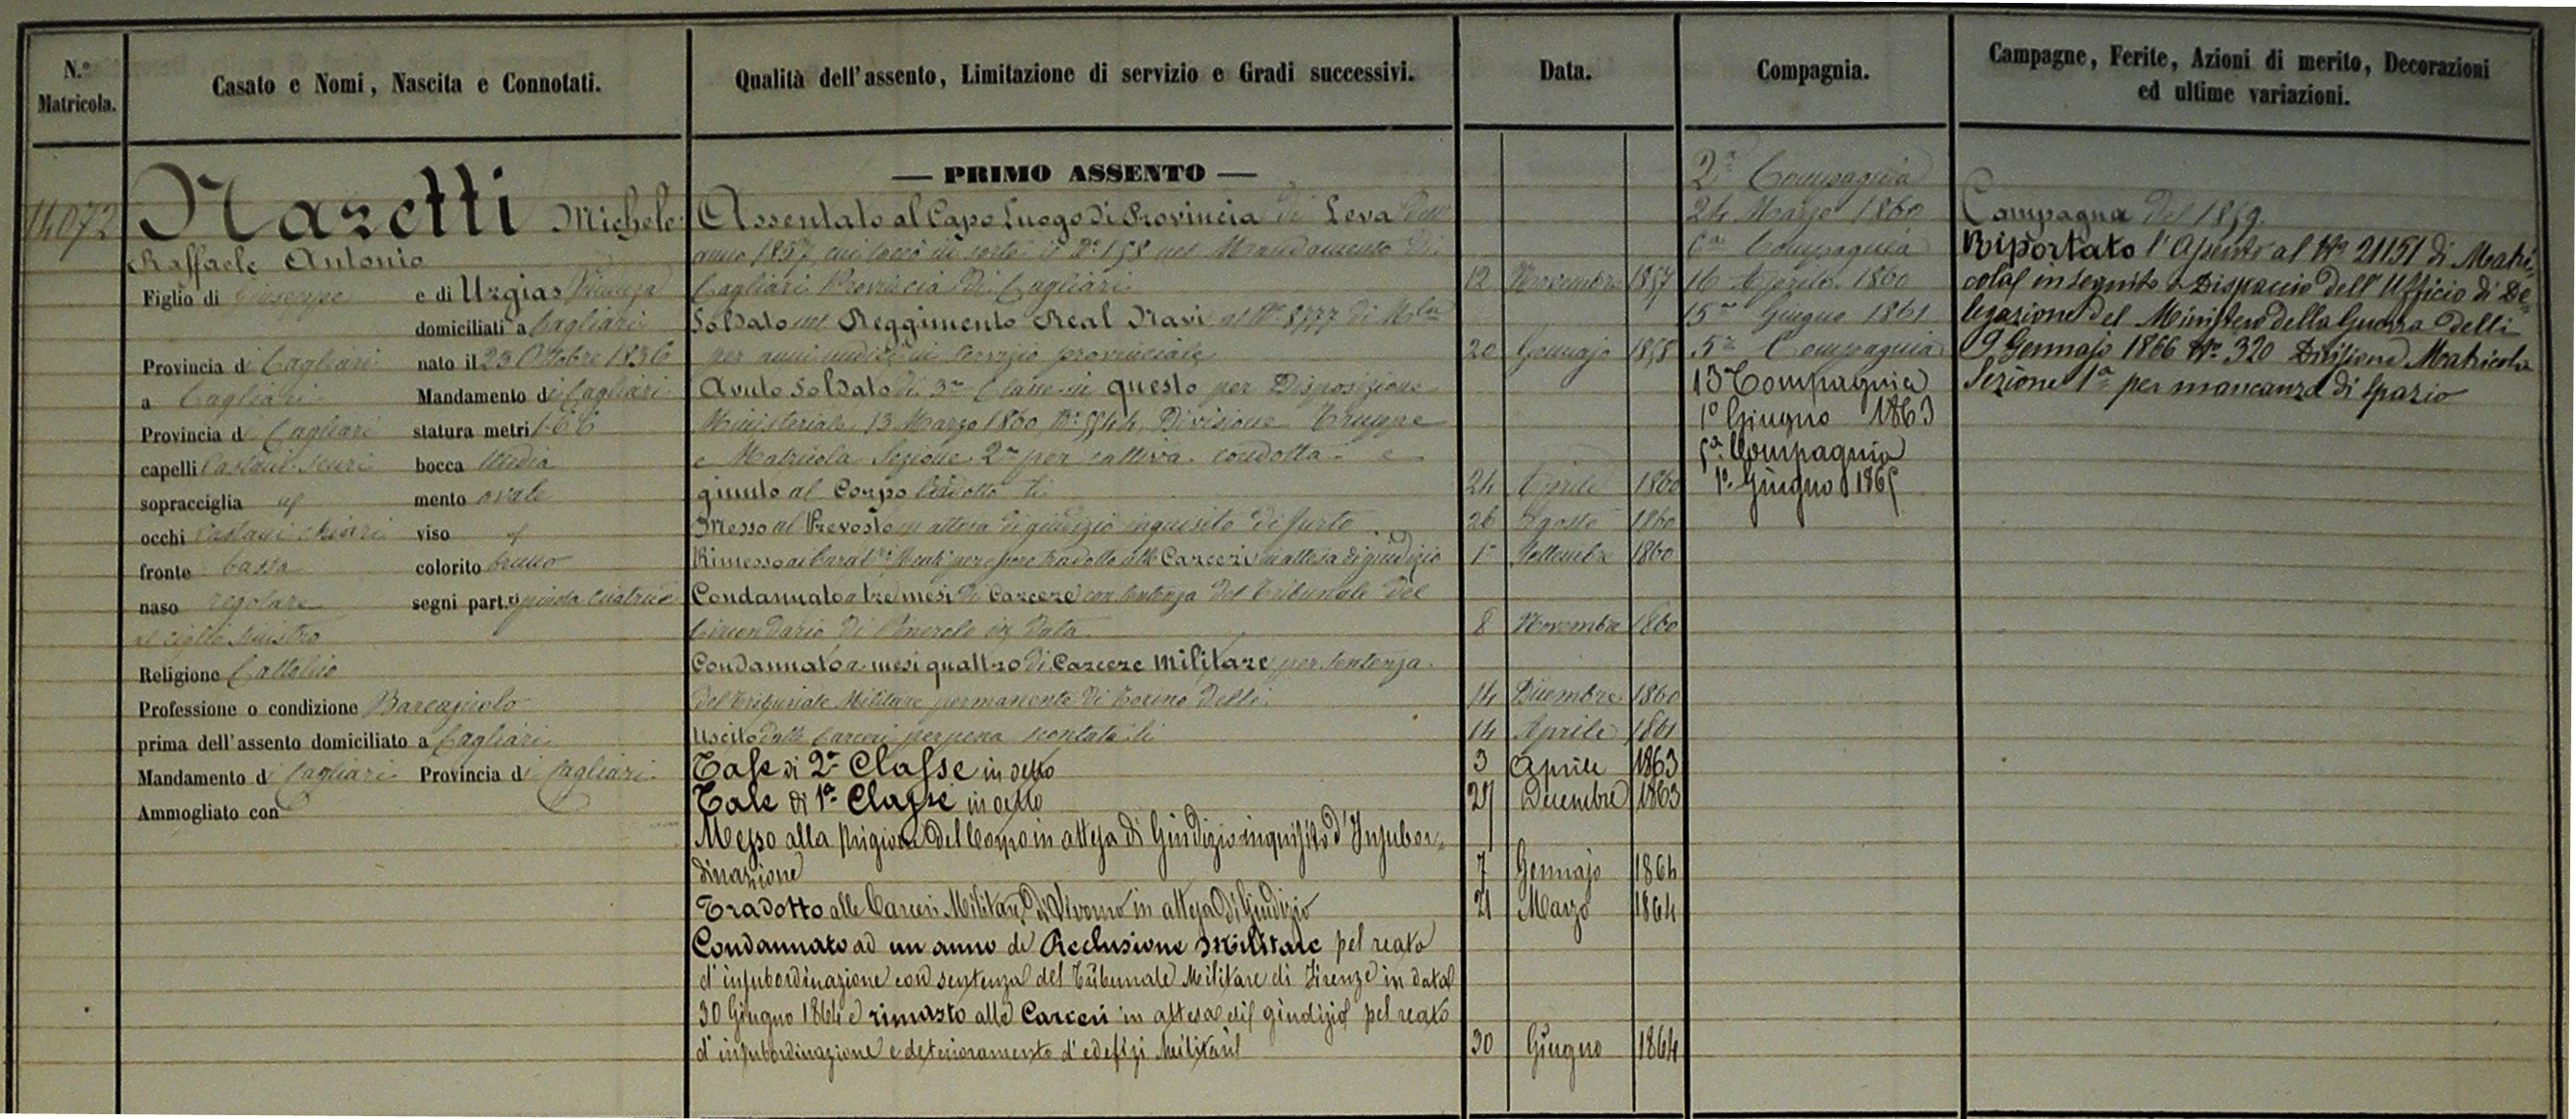 N.° Matricola.
Casato e Nomi, Nascita e Connotati.
Qualità dell'assento, Limitazione di servizio e Gradi successivi.
Data.
Compagnia.
Campagne, Ferite, Azioni di merito, Decorazioni
ed ultime variazioni.
14072
Nazetti Michele
Raffaele Antonio
Figlio di Giuseppe e di Urgias
domiciliati a Cagliari
Provincia di Cagliari nato il 23 Ottobre 1836
a Cagliari Mandamento di Cagliari
Provincia di Cagliari statura metri 1.66
capelli Castani scuri bocca media
sopracciglia id mento ovale
occhi castani chiari viso id
fronte bassa colorito bruno
naso regolare segni part.ri cicatrice
al ciglio sinistro
Religione Cattolico
Professione o condizione Barcajuolo
prima dell'assento domiciliato a Cagliari
Mandamento di Cagliari Provincia di Cagliari
Ammogliato con
— PRIMO ASSENTO —
Assentato al Capo Luogo di Provincia di Leva dell'
anno 1857 cui toccò in sorte il N.° 158 nel Mandamento di
Cagliari Provincia di Cagliari 12 Novembre 1857
Soldato nel Reggimento Real Navi al N.° 8777 di M.la
per anni undici in servizio provinciale 20 Gennajo 1858
Avuto Soldato di 3a Classe in questo per Disposizione
Ministeriale 13 Marzo 1860 N.° 5544 Divisione Truppe
e Matricola Sezione 2a per cattiva condotta e
giunto al Corpo li 24 Aprile 1860
Messo al Prevosto in attesa di giudizio inquisito di furto 26 Agosto 1860
Rimesso ai Carab.ri Reali per essere tradotto alle Carceri in attesa di giudizio 1° Settembre 1860
Condannato a tre mesi di Carcere con sentenza del Tribunale del
Circondario di Pinerolo in data 8 Novembre 1860
Condannato a mesi quattro di Carcere Militare per sentenza
del Tribunale Militare permanente di Torino delli 14 Dicembre 1860
Uscito dalle Carceri per pena scontata li 14 Aprile 1861
Tale di 2a Classe in detto 3 Aprile 1863
Tale di 1a Classe in detto 27 Dicembre 1863
Messo alla prigione del Corpo in attesa di Giudizio inquisito d'Insubor-
dinazione 7 Gennajo 1864
Tradotto alle Carceri Militari di Livorno in attesa di Giudizio 21 Marzo 1864
Condannato ad un anno di Reclusione Militare pel reato
d'insubordinazione con sentenza del Tribunale Militare di Firenze in data
30 Giugno 1864 e rimasto alle Carceri in attesa di giudizio pel reato
d'insubordinazione e deterioramento d'edefizi Militari 30 Giugno 1864
2a Compagnia
24 Marzo 1860
6a Compagnia
16 Aprile 1860
15a Giugno 1861
5a Compagnia
13a Compagnia
1° Giugno 1863
5a Compagnia
1° Giugno 1865
Campagna del 1859.
Riportato l'Assento al N° 21151 di Matri-
cola in seguito a Dispaccio dell'Ufficio di De-
legazione del Ministero della Guerra delli
9 Gennajo 1866 N° 320 Divisione Matricola
Sezione 1a per mancanza di spazio